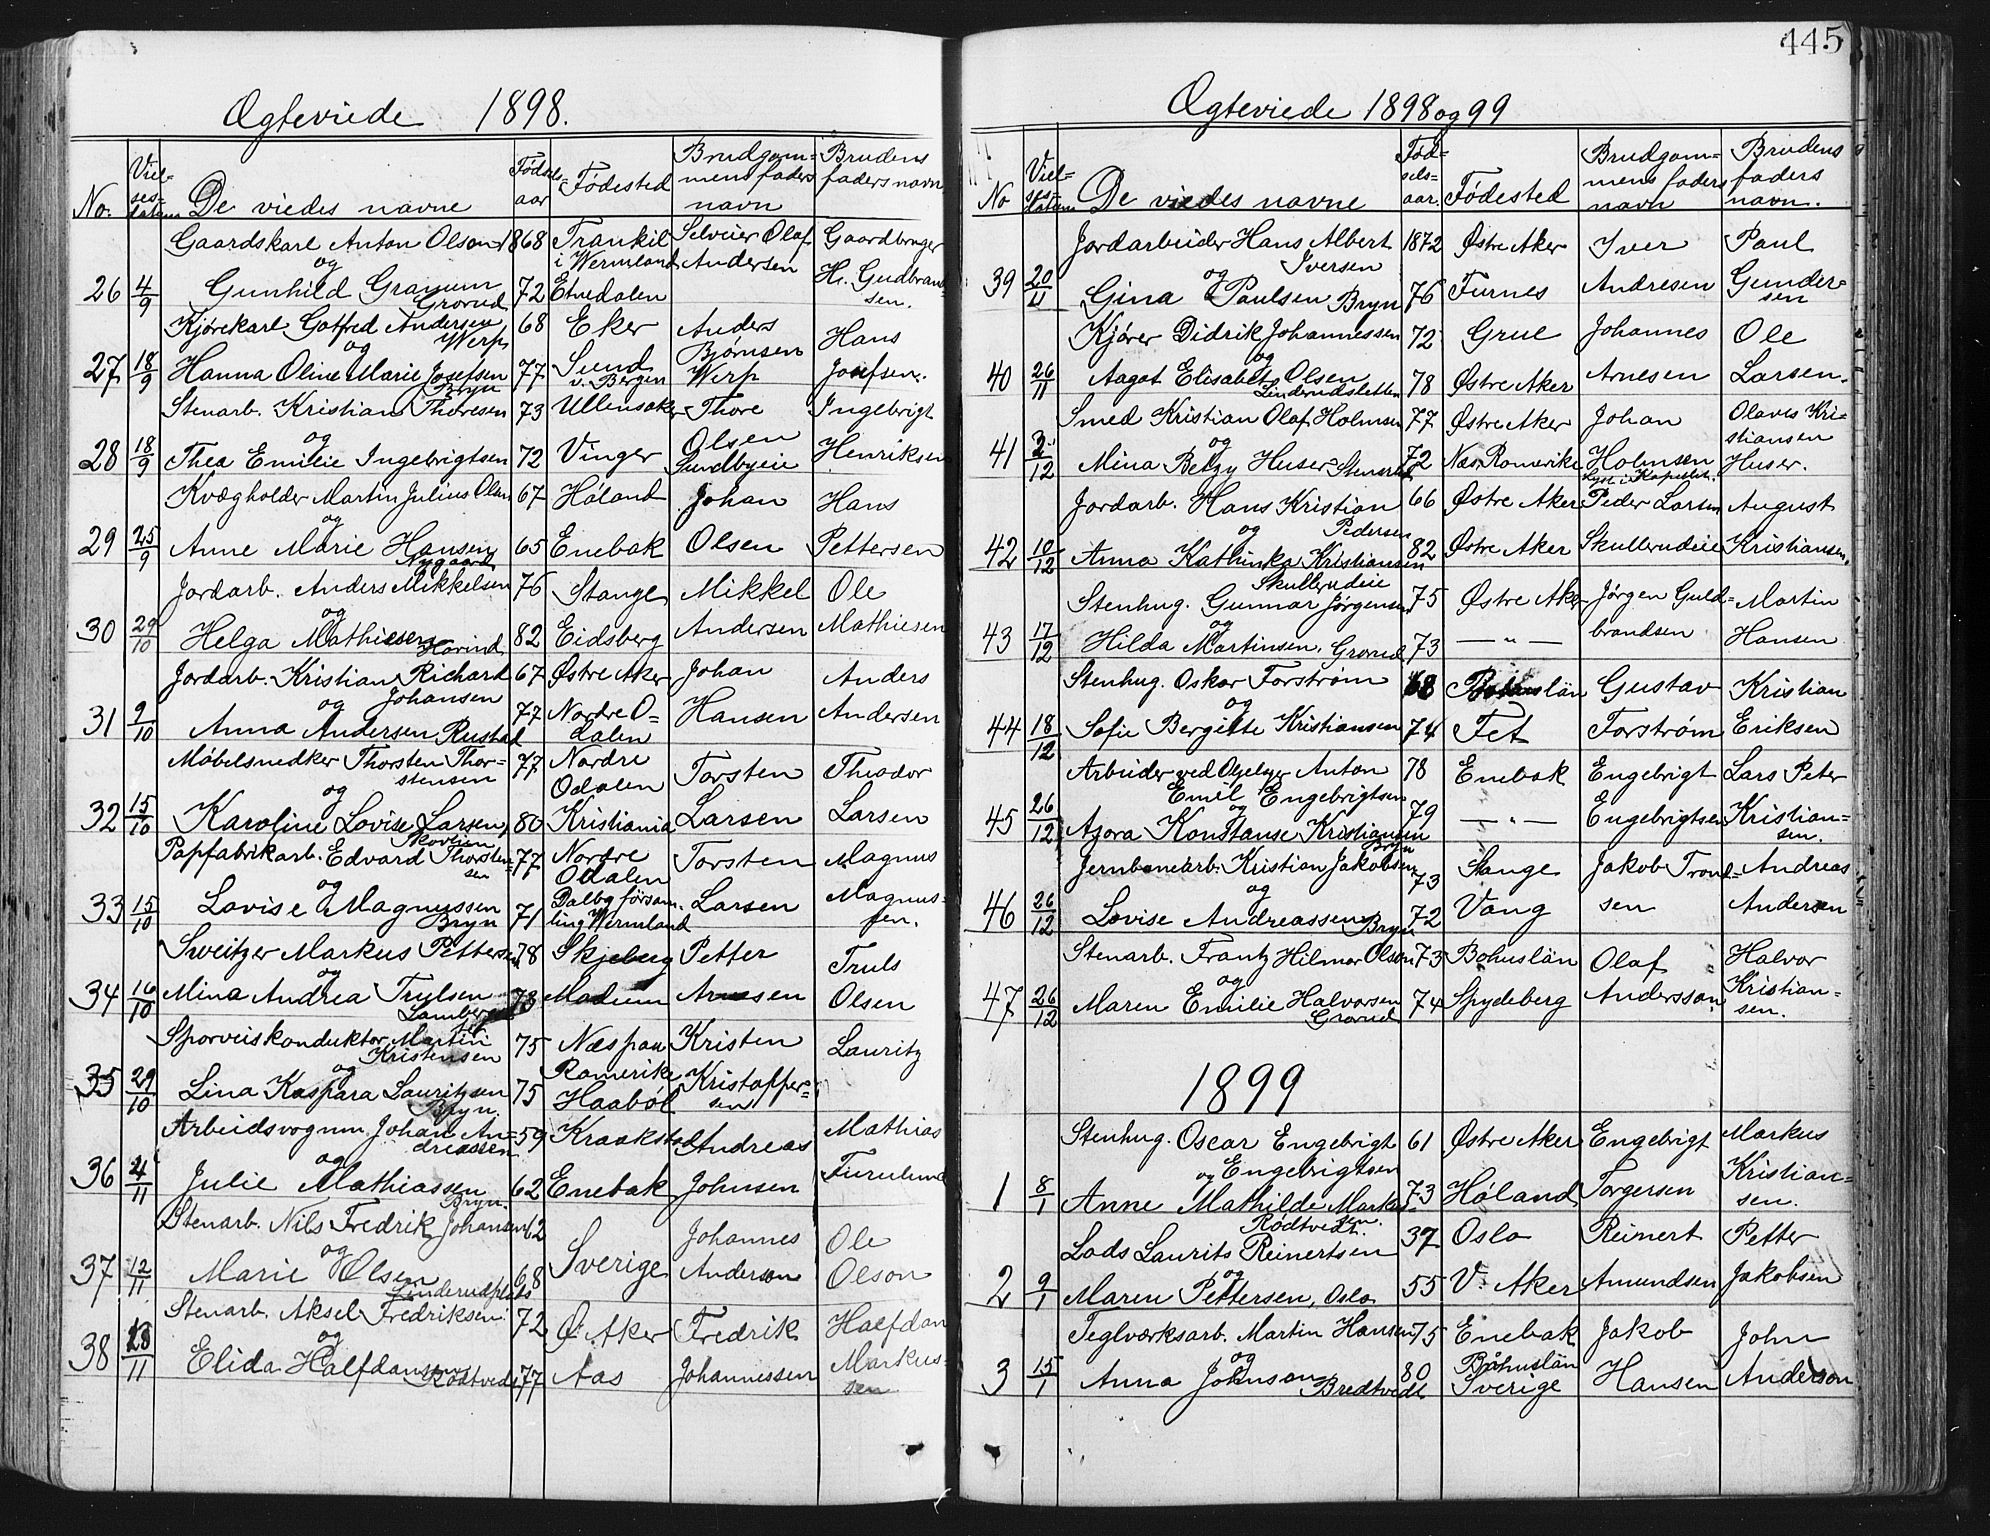 Ægteviede 1898.
No. Vielsesdatum De viedes navne Fødselsaar Fødested Brudgommens faders navn Brudens faders navn
Gaardskarl Anton Olsen 1868 Trankil Selveier Olaf Gaardbruger
og i Wermland Andersen
26 4/9 Gunhild Granum 72 Etnedalen H. Gudbrand-
Grorud sen.
Kjørekarl Gotfred Andersen 68 Eker Anders Hans
og Werp Bjørnsen
27 18/9 Hanna Oline Marie Josefsen 77 Sund Werp Josefsen.
Bryn v. Bergen
Stenarb. Kristian Thoresen 73 Ullensaker Thore Ingebrigt
og Olsen
28 18/9 Thea Emilie Ingebrigtsen 72 Vinger Sundbyeie Henriksen
Kvægholder Martin Julius Olsen 67 Høland Johan Hans
og
29 25/9 Anne Marie Hansen 65 Enebak Olsen Pettersen
Nygaard
Jordarb. Anders Mikkelsen 76 Stange Mikkel Ole
og
30 29/10 Helga Mathiesen 82 Eidsberg Andersen Mathiesen
Hovind
Jordarb. Kristian Richard 67 Østre Aker Johan Anders
og Johansen
31 9/10 Anna Andersen Rustad 77 Nordre O- Hansen Andersen
dalen
Møbelsnedker Thorsten Thor- 77 Nordre Torsten Theodor
og stensen Odalen
32 15/10 Karoline Lovise Larsen 80 Kristiania Larsen Larsen
Skovlien
Papfabrikarb. Edvard Thorsten- 77 Nordre Torsten Magnus
og sen Odalen
33 15/10 Lovise Magnussen 71 Dalby försam- Larsen Magnus-
Bryn ling Wermland sen.
Sweitzer Markus Pettersen 78 Skjeberg Petter Truls
og
34 16/10 Mina Andrea Trulsen 73 Madum Arnesen Olsen
Sporveiskonduktør Martin 75 Næs paa Kristen Lauritz
og Kristensen Romerike
35 29/10 Lina Kaspara Lauritzsen 75 Haabøl Kristoffer-
Bryn. sen
Arbeidsvognm. Johan An- 59 Kraakstad Andreas Mathias
og dreassen
36 4/11 Julie Mathiassen 62 Enebak Johnsen Furulund
Bryn.
Stenarb. Nils Fredrik Johansen 62 Sverige Johannes Ole
og
37 12/11 Marie Olsen 68 Anderson Olson
Linderudplads
Stenarb. Aksel Fredriksen 72 Ø. Aker Fredrik Halfdan
og
38 28/11 Elida Halfdansen 77 Aas Johannessen Markus-
Rødtvedt sen
445
Ægteviede 1898 og 99
No Vielsesdatum De viedes navne Fødselsaar. Fødested Brudgommens faders navn Brudens faders navn.
Jordarbeider Hans Albert 1872 Østre Aker Iver Paul
og Iversen
39 20/11 Gina Paulsen Bryn 76 Furnes Andresen Gunder-
sen
Kjører Didrik Johannessen 72 Grue Johannes Ole
og
40 26/11 Aagot Elisabet Olsen 78 Østre Aker Arnesen Larsen.
Linderudsletten
Smed Kristian Olaf Holmsen 77 Østre Aker Johan Olaves Kri-
og stiansen
41 3/12 Mina Betzy Huser 72 Næs Romerike Holmsen Huser.
Lyst i Kapellet.
Jordarb. Hans Kristian 66 Østre Aker Peder Larsen August
og Pedersen
42 10/12 Anna Kathinka Kristiansen 82 Østre Aker Skullerudeie Kristiansen.
Skullerudeie
Stenhug. Gunnar Jørgensen 75 Østre Aker Jørgen Guld- Martin
og
43 17/12 Hilda Martinsen, Grorud 73 — " — brandsen Hansen
Stenhug. Oskar Forstrøm 68 Bohuslän Gustav Kristian
og
44 18/12 Sofie Bergitte Kristiansen 74 Fet Forstrøm Eriksen
Arbeider ved Anton 78 Enebak Engebrigt Lars Peter
Emil Engebrigtsen
og
45 26/12 Azora Konstanse Kristiansen 79 — " — Engebrigtsen Kristian-
Bryn sen.
Jernbanearb. Kristian Jakobsen 73 Stange Jakob Trond- Andreas
og
46 26/12 Lovise Andreassen Bryn 72 Vang sen Andersen
Stenarb. Frantz Hilmar Olson 73 Bohuslän Olaf Halvor
og
47 26/12 Maren Emilie Halvorsen 74 Spydeberg Andersson. Kristian-
Grorud sen.
1899
Stenhug. Oscar Engebrigt 61 Østre Aker Engebrigt Markus
og Engebrigtsen
1 8/1 Anne Mathilde Markus- 73 Høland Torgersen Kristian-
sen. Rødtvedt. sen.
Lods Laurits Reinertsen 37 Oslo Reinert Petter
og
2 9/1 Maren Pettersen, Oslo 55 V. Aker Amundsen Jakobsen
Teglværksarb. Martin Hansen 75 Enebak Jakob John
og
3 15/1 Anna Johnson 80 Båhuslän Hansen Anderson
Bredtvedt Sverige